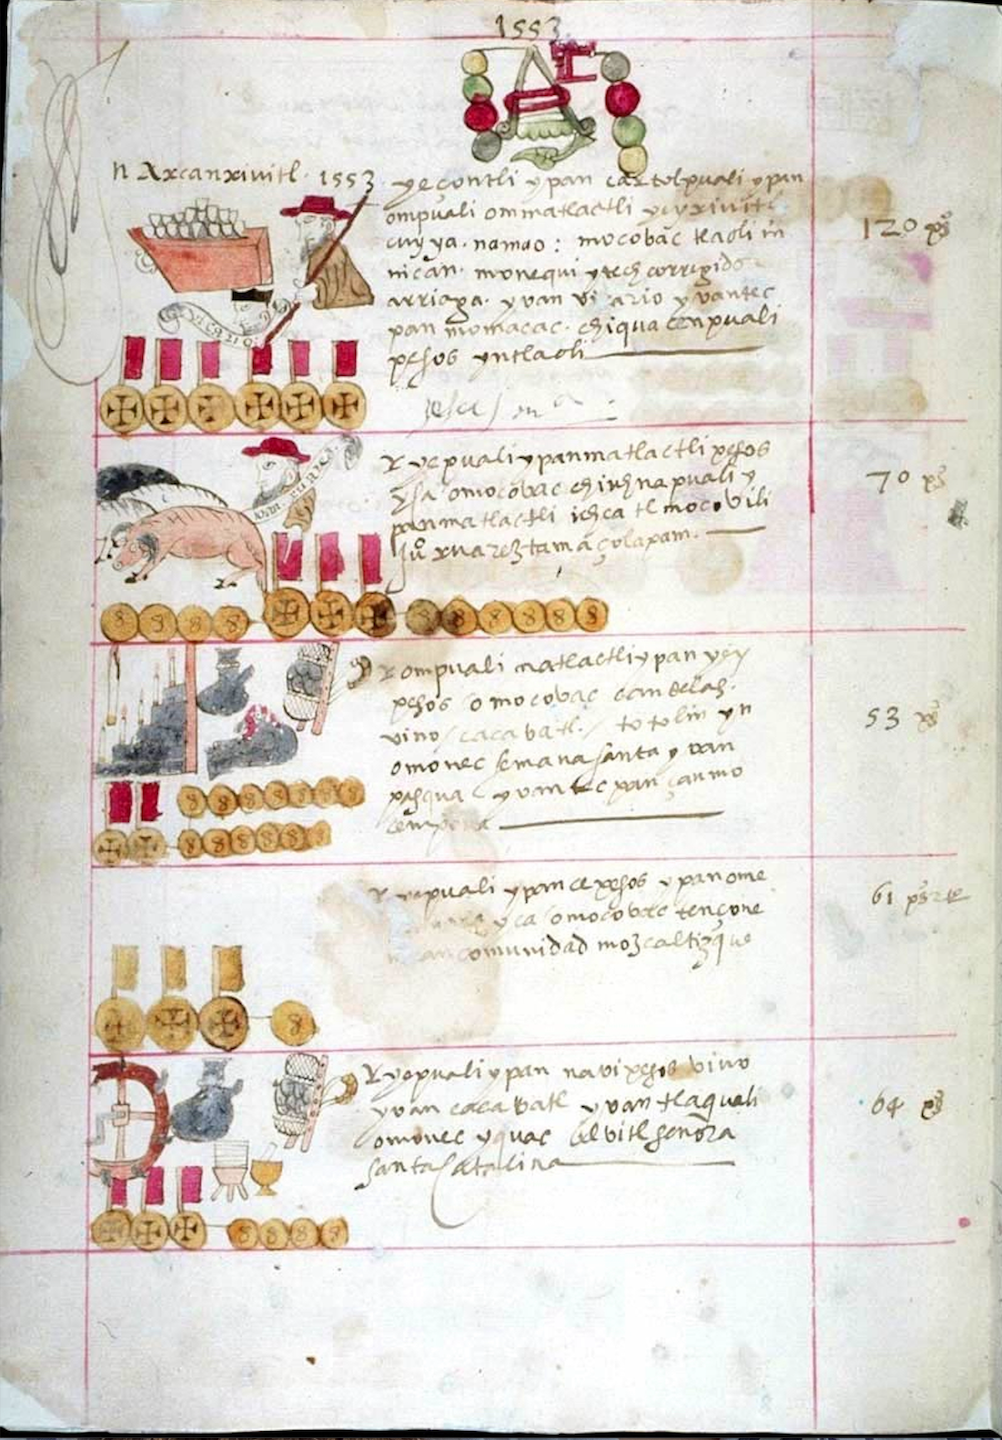 1553
n Axcanxivitl. 1553. yecontli ypan caxtolpuali ypan
ompuali ommatlactli yeyxivitl
cuyya. namao: mocobac tlaoli in
nican. monequi ytech corregidor
arriaga. yvan vicario yvantec
pan momacac. chiquacenpuali
pesos yntlaoli
120 pos
vicario
R yepuali ypanmatlactli pesos
yca omocobac chiuhnapuali y
panmatlactli ichca tlmocobili
Juo xuarez tamaçolapam.
70 ps
R ompuali matlactli ypan yey
pesos omocobac candelas.
vino / cacabatl / totolin yn
omonec semana santa yvan
pasqua yvan tecpan çanmo
53 ps
R yepuali ypan ce pesos ypan ome
yca omocobac tençone
comunidad mozcaltizque
61 ps 2 tr
R yepuali ypan navi pesos vino
yvan cacabatl yvan tlaquali
omonec yquac ylvitl señora
santa Catalina
64 ps